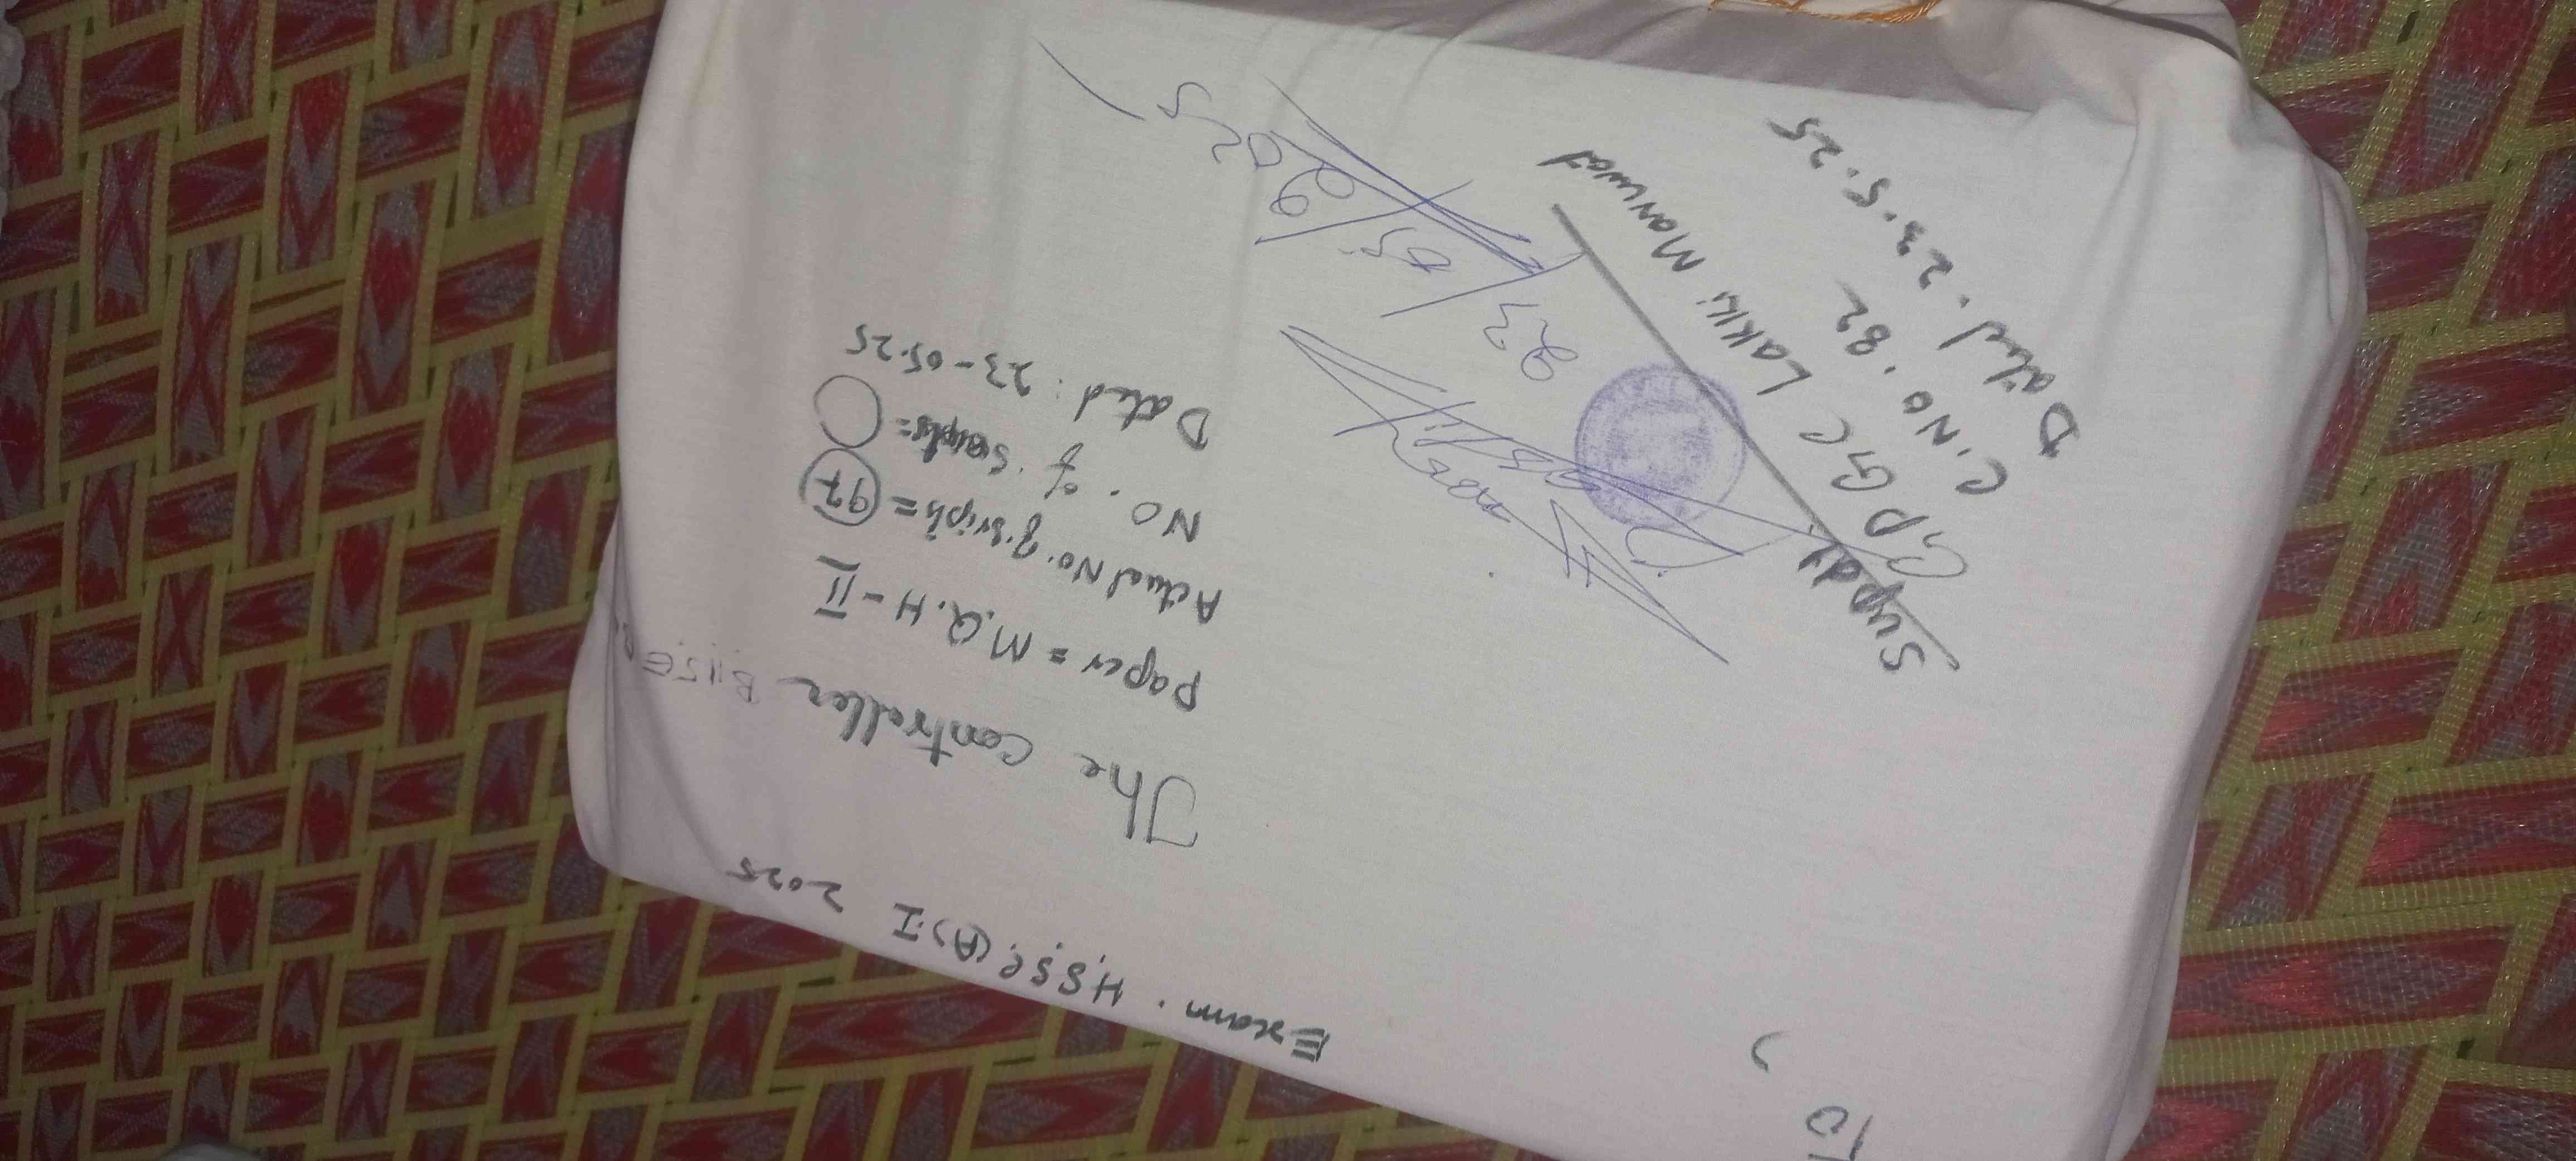 To,
Exam. H.S.S.C.(A).I 2025
The Controller BISE
Paper = M.Q.H-II
Actual No. of Scripts = 97
No. of Scripts =
Dated: 23-05-25
23/05/2025
Supdt
G.P.G.C Lakki Marwat
C.No. 82
Dated. 23.5.25